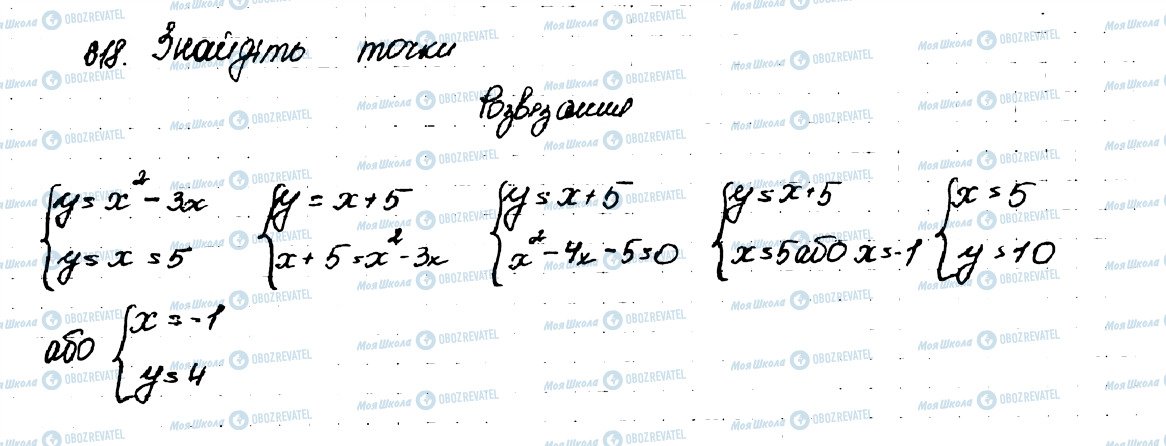 818. Знайдіть точки
Розв'язання
{ y = x² - 3x { y = x + 5 { y = x + 5 { y = x + 5 { x = 5
y = x = 5 x + 5 = x² - 3x x² - 4x - 5 = 0 x = 5 або x = -1 y = 10
або { x = -1
y = 4
Моя Школа OBOZREVATEL